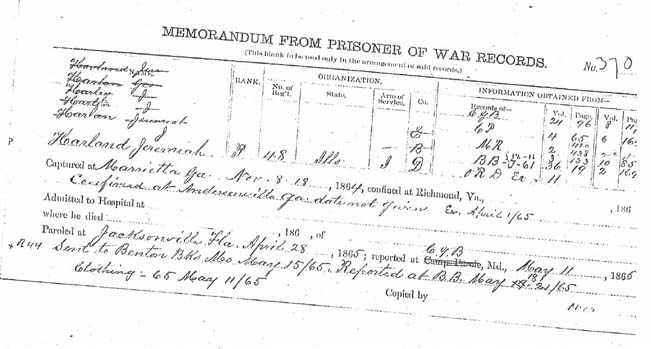 MEMORANDUM FROM PRISONER OF WAR RECORDS.
(This blank to be used only in the arrangement of said records.)
No. 370
NAME
Harland Jere
Harlan Geo
Harley J
J
Harlan Jeremiah
J
RANK. ORGANIZATION. INFORMATION OBTAINED FROM—
No. of Reg't. State. Arm of Service. Co. Records of— Vol. Page. Vol.
C G B 24 96 8
E C P 4 65 6
B M R 2
Harland Jeremiah P 48 Ills I D B B 36 133 10
O R D Ex 11 19 2
Captured at Marrietta Ga., Nov. 8 18, 1864, confined at Richmond, Va., , 186
Confined at Andersonville Ga. date not given Ex. April 1/65
Admitted to Hospital at
where he died , 186 , of
Paroled at Jacksonville Fla. April 28, 1865; reported at Camp Parole, Md., C G B May 11, 1865
R44 Sent to Benton Bks Mo. May 15/65. Reported at B.B. May /65
Clothing - 65 May 11/65
Copied by